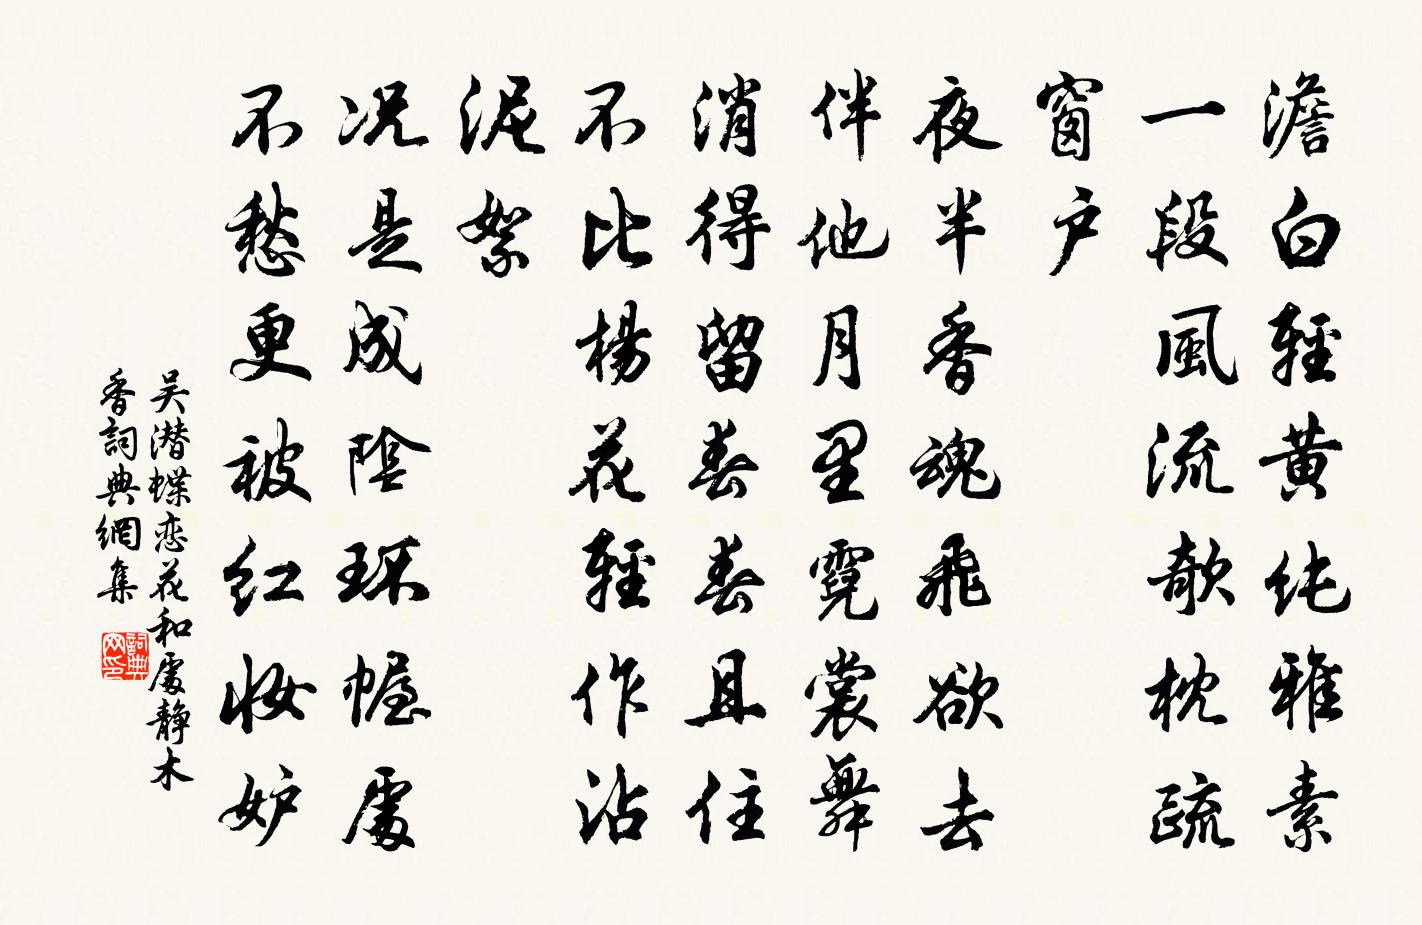 澹白輕黄純雅素
一段風流欹枕疏
窗户
夜半香魂飛欲去
伴他月里霓裳舞
消得留春春且住
不比楊花輕作沾
泥絮
况是成陰環幄處
不愁更被红妆妒
吴潜蝶恋花和處静木
香詞典網集
詞典网印